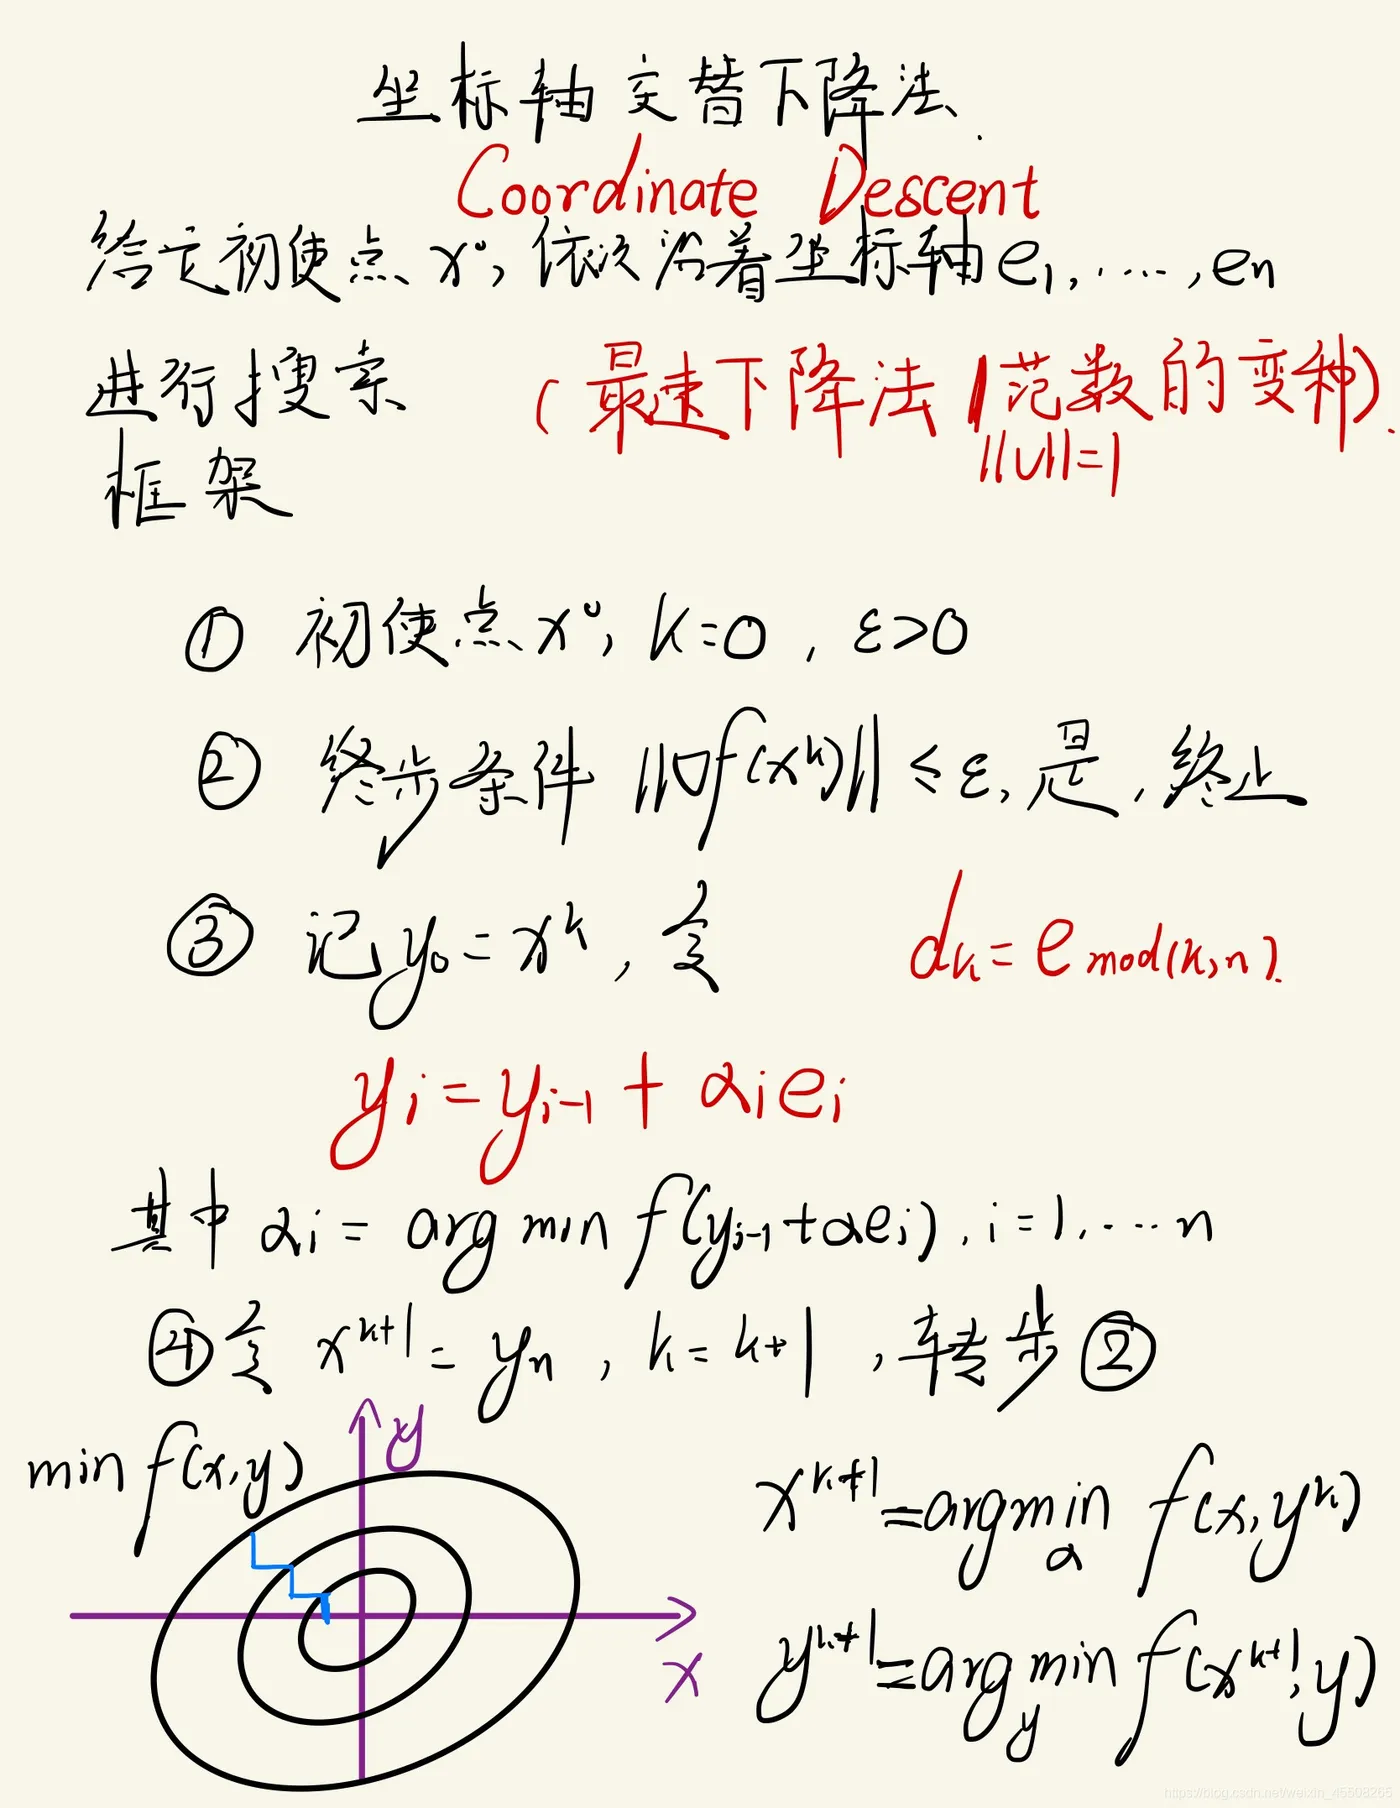 坐标轴交替下降法.
Coordinate Descent
给定初使点 x⁰, 依次沿着坐标轴 e₁, ...., eₙ
进行搜索 (最速下降法 1范数的变种).
||v||=1
框架
① 初使点 x⁰, k=0, ε>0
② 终步条件 ||∇f(xᵏ)|| ≤ ε, 是, 终止
③ 记 y₀ = xᵏ, 令 dₖ = e mod(k,n).
yᵢ = yᵢ₋₁ + αᵢeᵢ
其中 αᵢ = arg min f(yᵢ₋₁ + αeᵢ), i = 1, ... n
④ 令 xᵏ⁺¹ = yₙ, k = k+1, 转步②
min f(x,y)
y
x
xᵏ⁺¹ = argmin f(x, yᵏ)
α
yᵏ⁺¹ = arg min f(xᵏ⁺¹, y)
y
https://blog.csdn.net/weixin_45508265